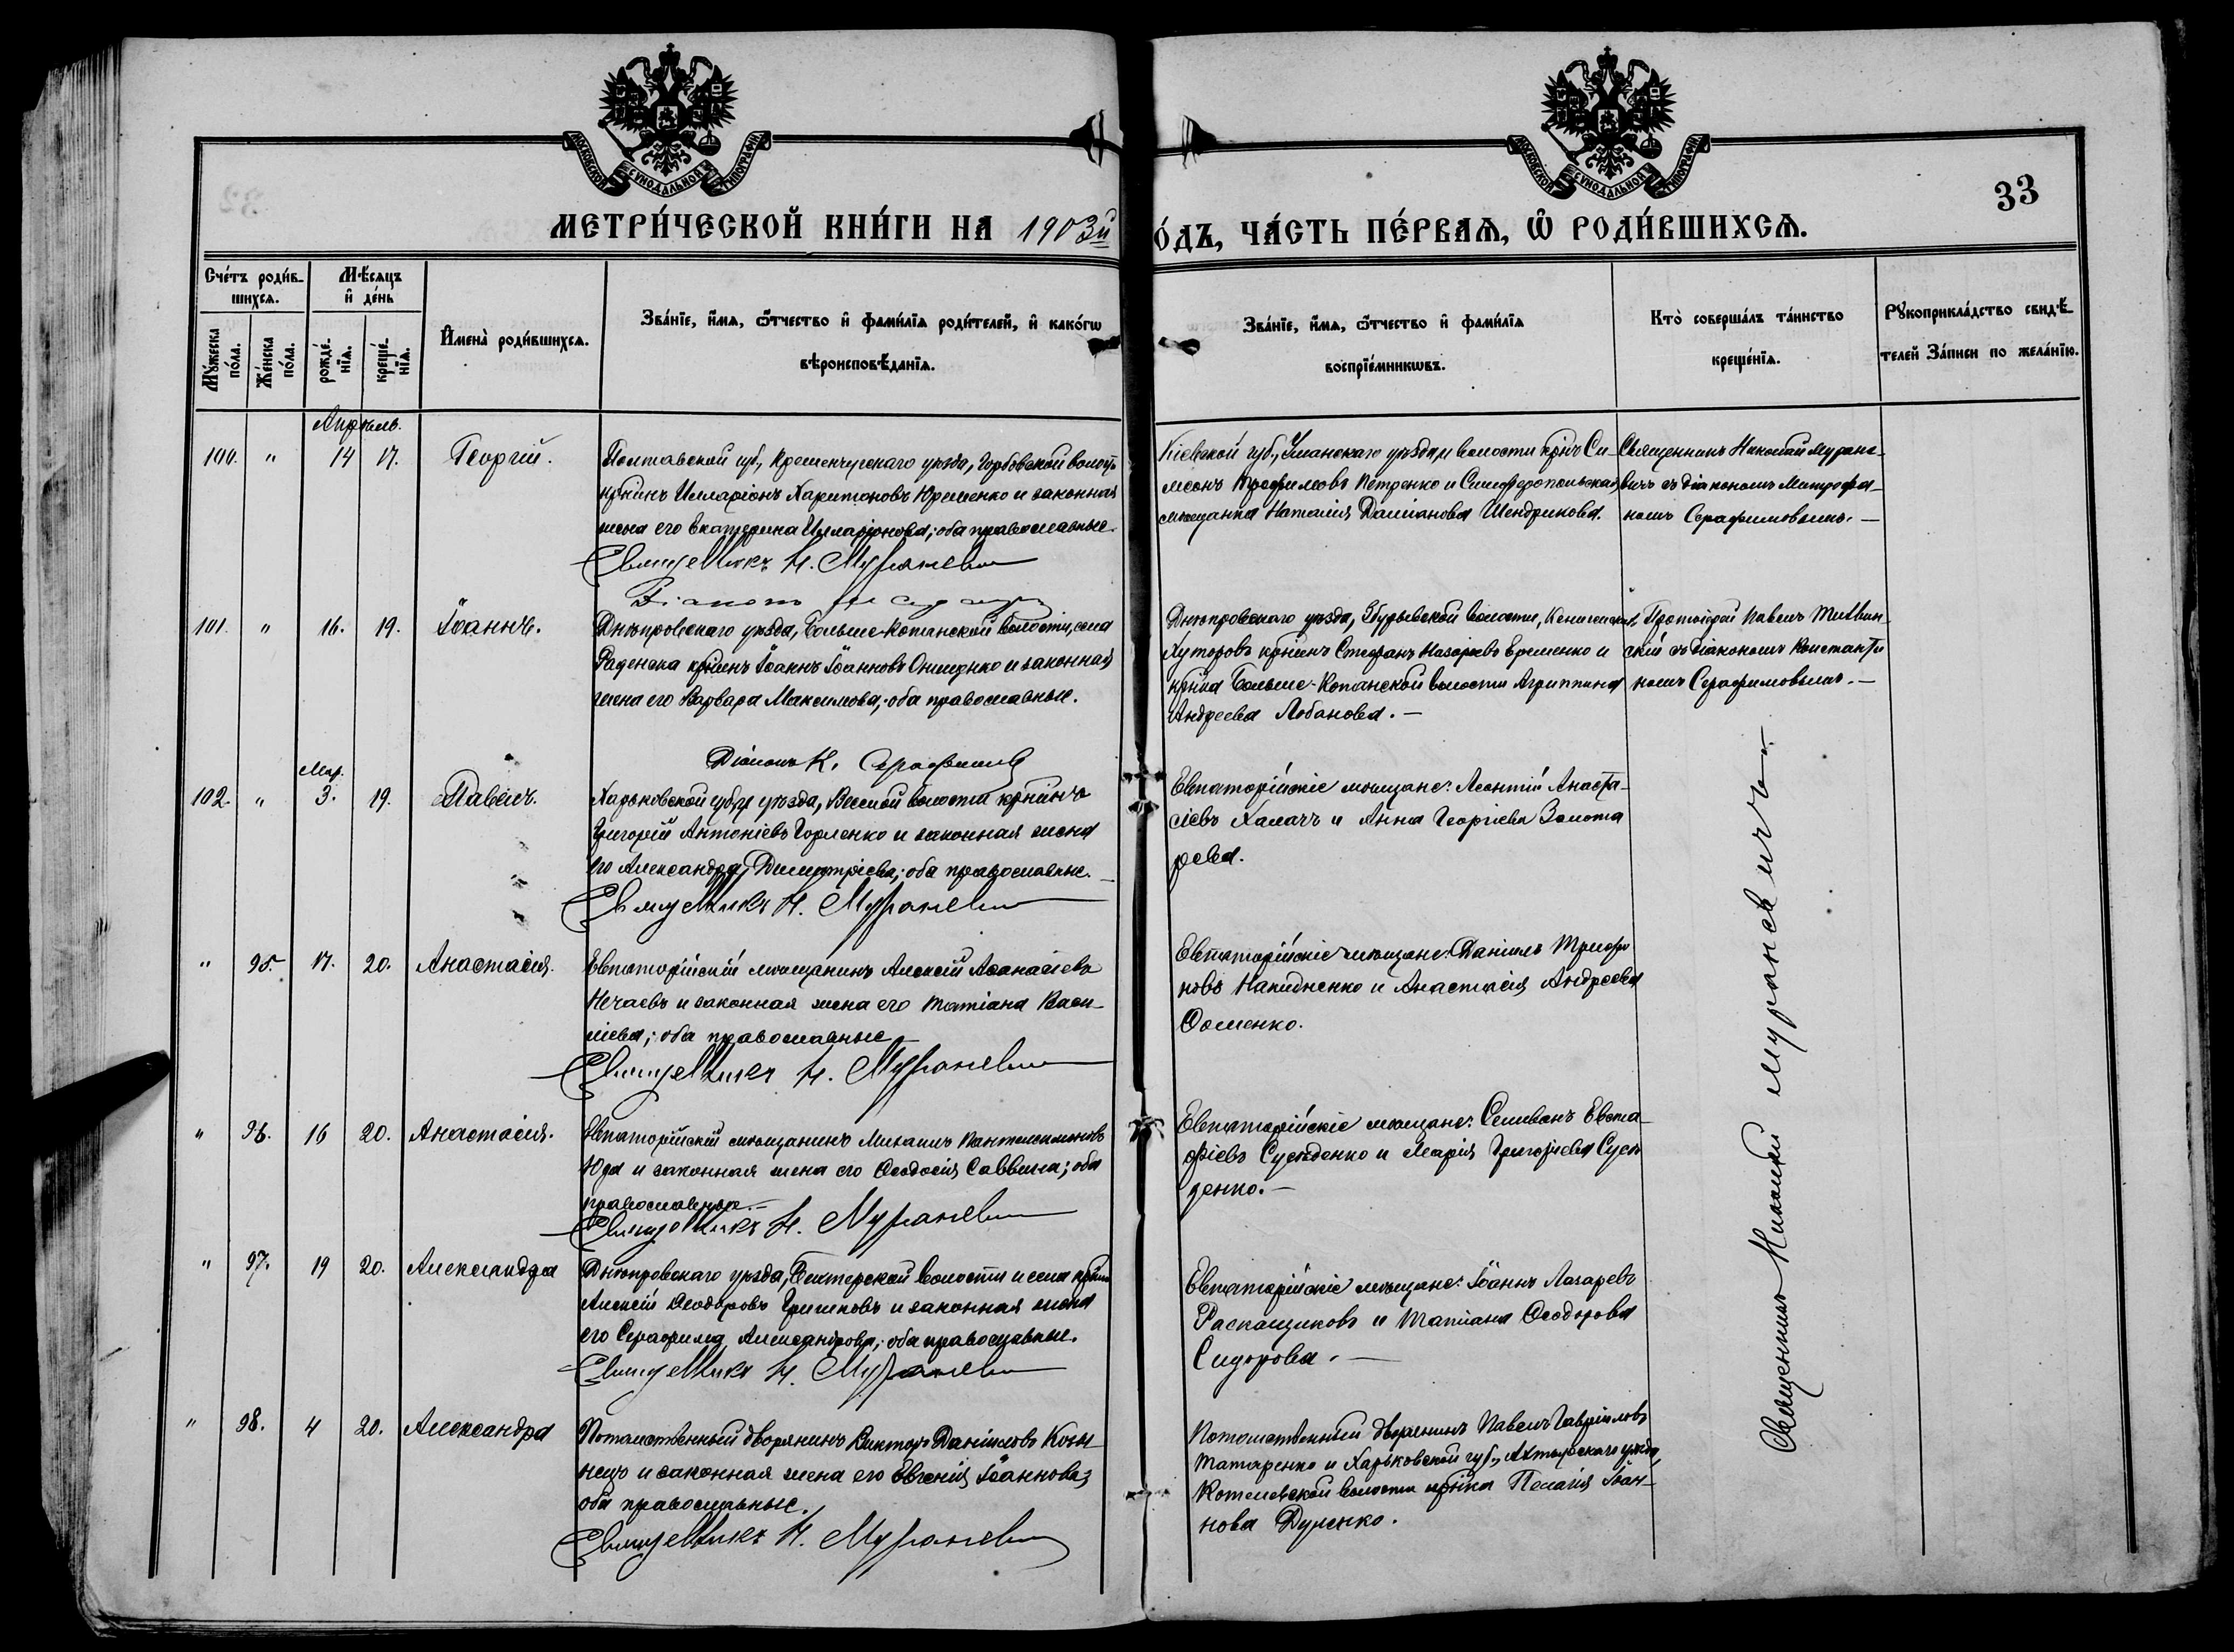 МОСКОВСКОЙ СѴНОДАЛЬНОЙ ТИПОГРАФІИ
МОСКОВСКОЙ СѴНОДАЛЬНОЙ ТИПОГРАФІИ
33
МЕТРИ́ЧЕСКОЙ КНИ́ГИ НА 1903й
О́ДЪ, ЧА́СТЬ ПЕ́РВАѦ, Ѽ РОДИ́ВШИХСѦ.
Сче́тъ роди́в-
шихсѧ.
Мѣ́сѧцъ
и҆ де́нь
Мꙋ́жеска по́ла.
Же́нска по́ла.
рожде́нїѧ.
креще́нїѧ.
И҆мена̀ роди́вшихсѧ.
Зва́нїе, и҆́мѧ, ѻ҆́тчество и҆ фами́лїѧ роди́телей, и҆ како́гѡ
вѣроисповѣ́данїѧ.
Зва́нїе, и҆́мѧ, ѻ҆́тчество и҆ фами́лїѧ
воспрїе́мникѡвъ.
Кто̀ соверша́лъ та́инство
креще́нїѧ.
Рꙋкоприкла́дство свидѣ́-
телей за́писи по жела́нїю.
Апрѣль.
100. " 14 17. Георгій.
Полтавской губ., Кременчугскаго уѣзда,
крнинъ Илларіонъ Харитоновъ Юрешенко и законная
жена его Екатерина Илларіонова; оба православные.
Священникъ Н. Мураневичъ
Кіевской губ., Уманскаго уѣзда, и волости крнъ Си-
меонъ Трофимовъ Петренко и Симферопольская
мѣщанка Наталія Даміанова Шендрикова.
Священникъ Николай Муране-
вичъ съ діакономъ Митрофа-
номъ Серафимовымъ. —
101. " 16. 19. Іоаннъ.
Днѣпровскаго уѣзда, Больше-Копанской волости, села
Раденска крнинъ Іоаннъ Іоанновъ Онищенко и законная
жена его Варвара Максимова; оба православные.
Діаконъ К. Серафимовъ
Днѣпровскаго уѣзда, Збурьевской волости,
Хуторовъ крнинъ Стефанъ Назаріевъ Еременко и
крнка Больше-Копанской волости Агриппина
Андреева Лобанова. —
Протоіерей Павелъ
скій съ діакономъ Константи
номъ Серафимовымъ. —
102. " Мар. 3. 19. Павелъ.
Харьковской губ. и уѣзда, волости крнинъ
Григорій Антоніевъ Горленко и законная жена
его Александра Димитріева; оба православные.
Священникъ Н. Мураневичъ
Евпаторійскіе мѣщане: Леонтій Анаста-
сіевъ Халачъ и Анна Георгіева Золота
рева.
" 95. 17. 20. Анастасія.
Евпаторійскій мѣщанинъ Алексій Аѳанасіевъ
Нечаевъ и законная жена его Татіана Васи-
ліева; оба православные
Священникъ Н. Мураневичъ
Евпаторійскіе мѣщане: Даніилъ Трифо
новъ и Анастасія Андреева
Ѳоменко.
" 96. 16 20. Анастасія.
Евпаторійскій мѣщанинъ Михаилъ Пантелеимоновъ
Юда и законная жена его Ѳеодосія Саввина; оба
православные. —
Священникъ Н. Мураневичъ
Евпаторійскіе мѣщане: Селиванъ Евста-
фіевъ Сусѣденко и Марія Григоріева Сусѣ
денко. —
" 97. 19 20. Александра
Днѣпровскаго уѣзда, Бехтерской волости и села крнинъ
Алексій Ѳеодоровъ Гришковъ и законная жена
его Серафима Александрова; оба православные.
Священникъ Н. Мураневичъ
Евпаторійскіе мѣщане: Іоаннъ Лазаревъ
Раскащиковъ и Татіана Ѳеодорова
Сидорова. —
" 98. 4 20. Александра
Потомственный дворянинъ Викторъ Даниловъ
и законная жена его Евгенія Іоаннова;
оба православные.
Священникъ Н. Мураневичъ
Потомственный дворянинъ Павелъ Гавріиловъ
Татаренко и Харьковской губ., Ахтырскаго уѣзда,
Котелевской волости крнка Пелагія Іоан-
нова Дуленко.
Священникъ Николай Мураневичъ. —